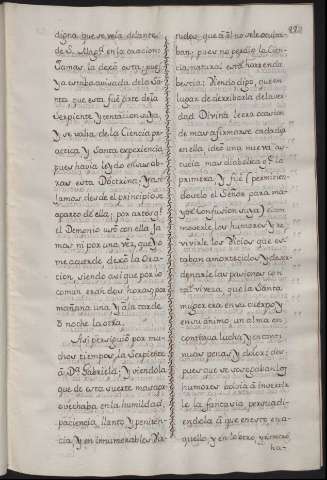 digna que se vela delante
de S. Mag.d en la oracion:
Jamas la dexó esta; pues
ya estaba avisada la San
ta que esta fué arte de la
Serpiente y tentacion suya,
y se valia de la Ciencia pra
ctica, y Santa experiencia
pues havia leydo en sus ob
xas esta Doctrina; y asi
jamas desde el principio se
apartó de ella; por arte q.e
el Demonio usó con ella, ja
mas ni por una vez, que yo
me acuerde dexó la Ora
cion, siendo asi que por lo
comun eran dos horas, por
mañana una, y a la tarde
ó noche la otra.
Asi persiguió por mu
chos tiempos la Serpiente
á D.a Gabriela; y viendola
que de esta suerte mas apro
vechaba en la humildad,
paciencia, llanto y peniten
cia, y en innumerables
222
tudes, que á él no se le oculta
ban; pues no perdió la Cien
cia natural esta horrenda
bestia; Viendo digo, que en
lugar de derribarla de la ver
dad Divina, le era ocasion
de mas afirmarse cada dia
en ella, ideó una nueva as
tucia mas diabolica q.e la
primera, y fué (permitien
doselo el Señor para ma
yor confusion suya)
moverle los humores y re
vivirle los Vicios que es
taban amortecidos y deso
denarle las pasiones con
tal viveza que la Santa
muger era en su cuerpo y
en su ánimo, un alma en
continua lucha y en conti
nuas penas y dolor; des
pues que se sosegaban los
humores bolvia á inverti
le la fantasia persuadi
endola á que en este ena
quello, y en lo otro,
ha-